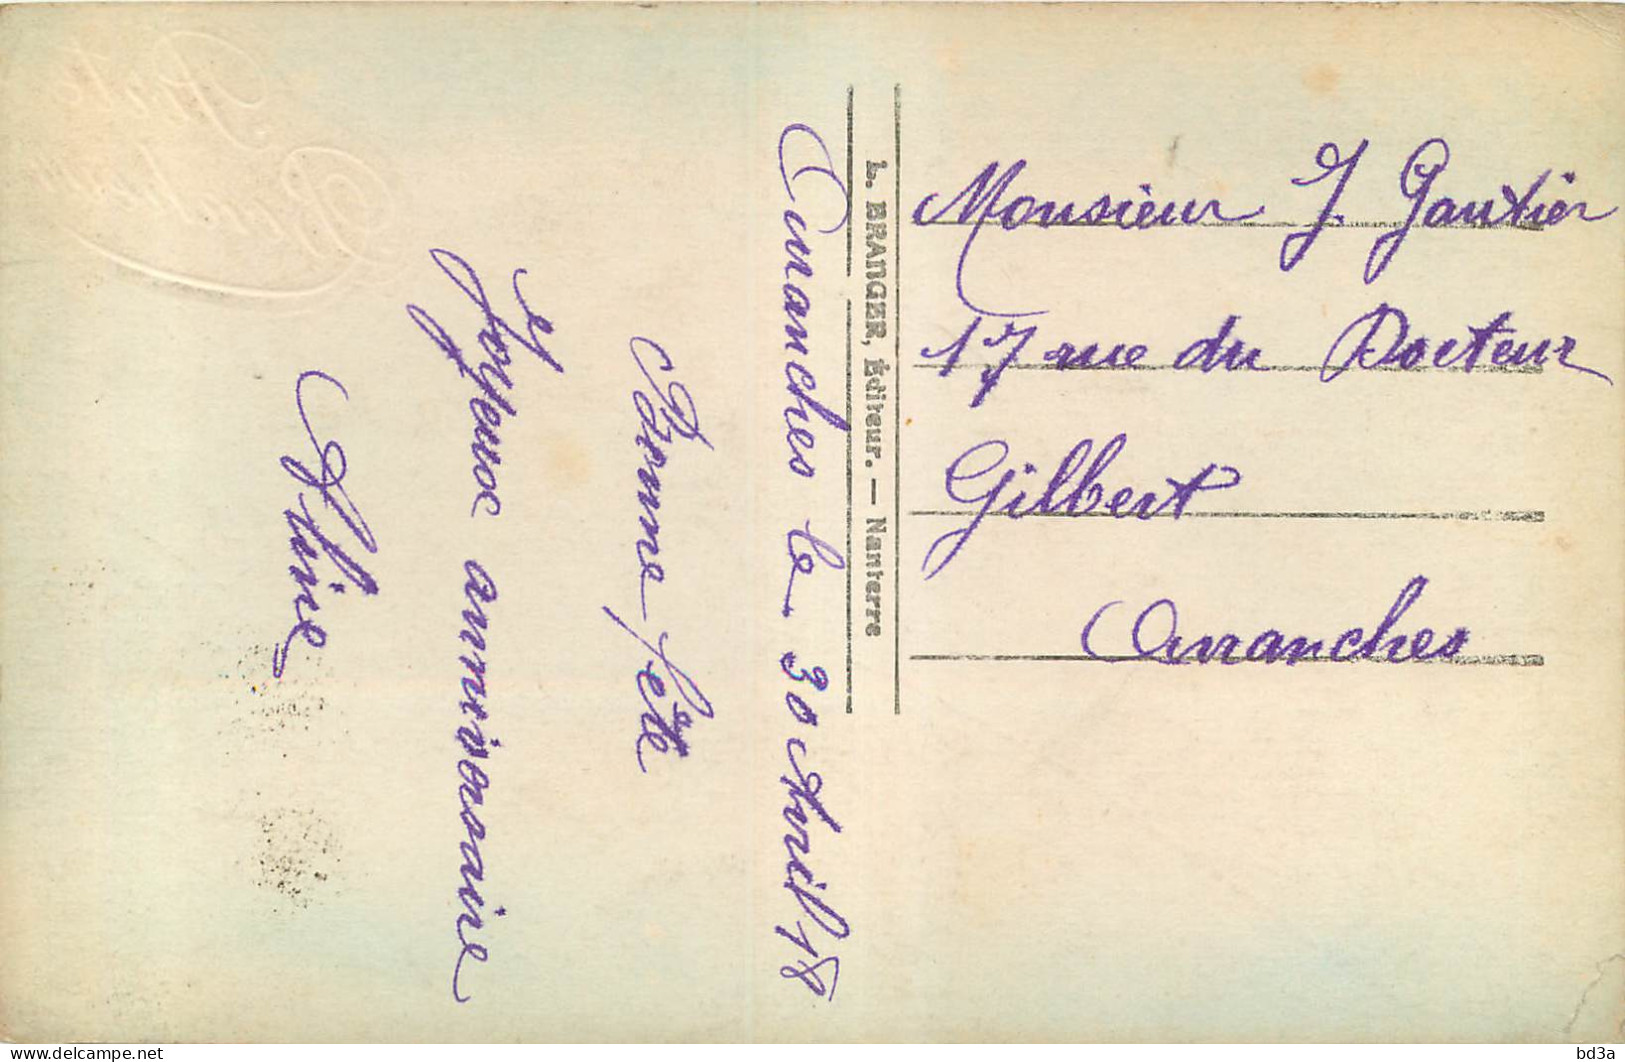 Avranches le 30 Avril 18
Bonne fête
et
Joyeux anniversaire
Aline
L. BRANGER, Éditeur. — Nanterre
Monsieur J. Gautier
17 rue du Docteur
Gilbert
Avranches
delcampe.net
bd3a